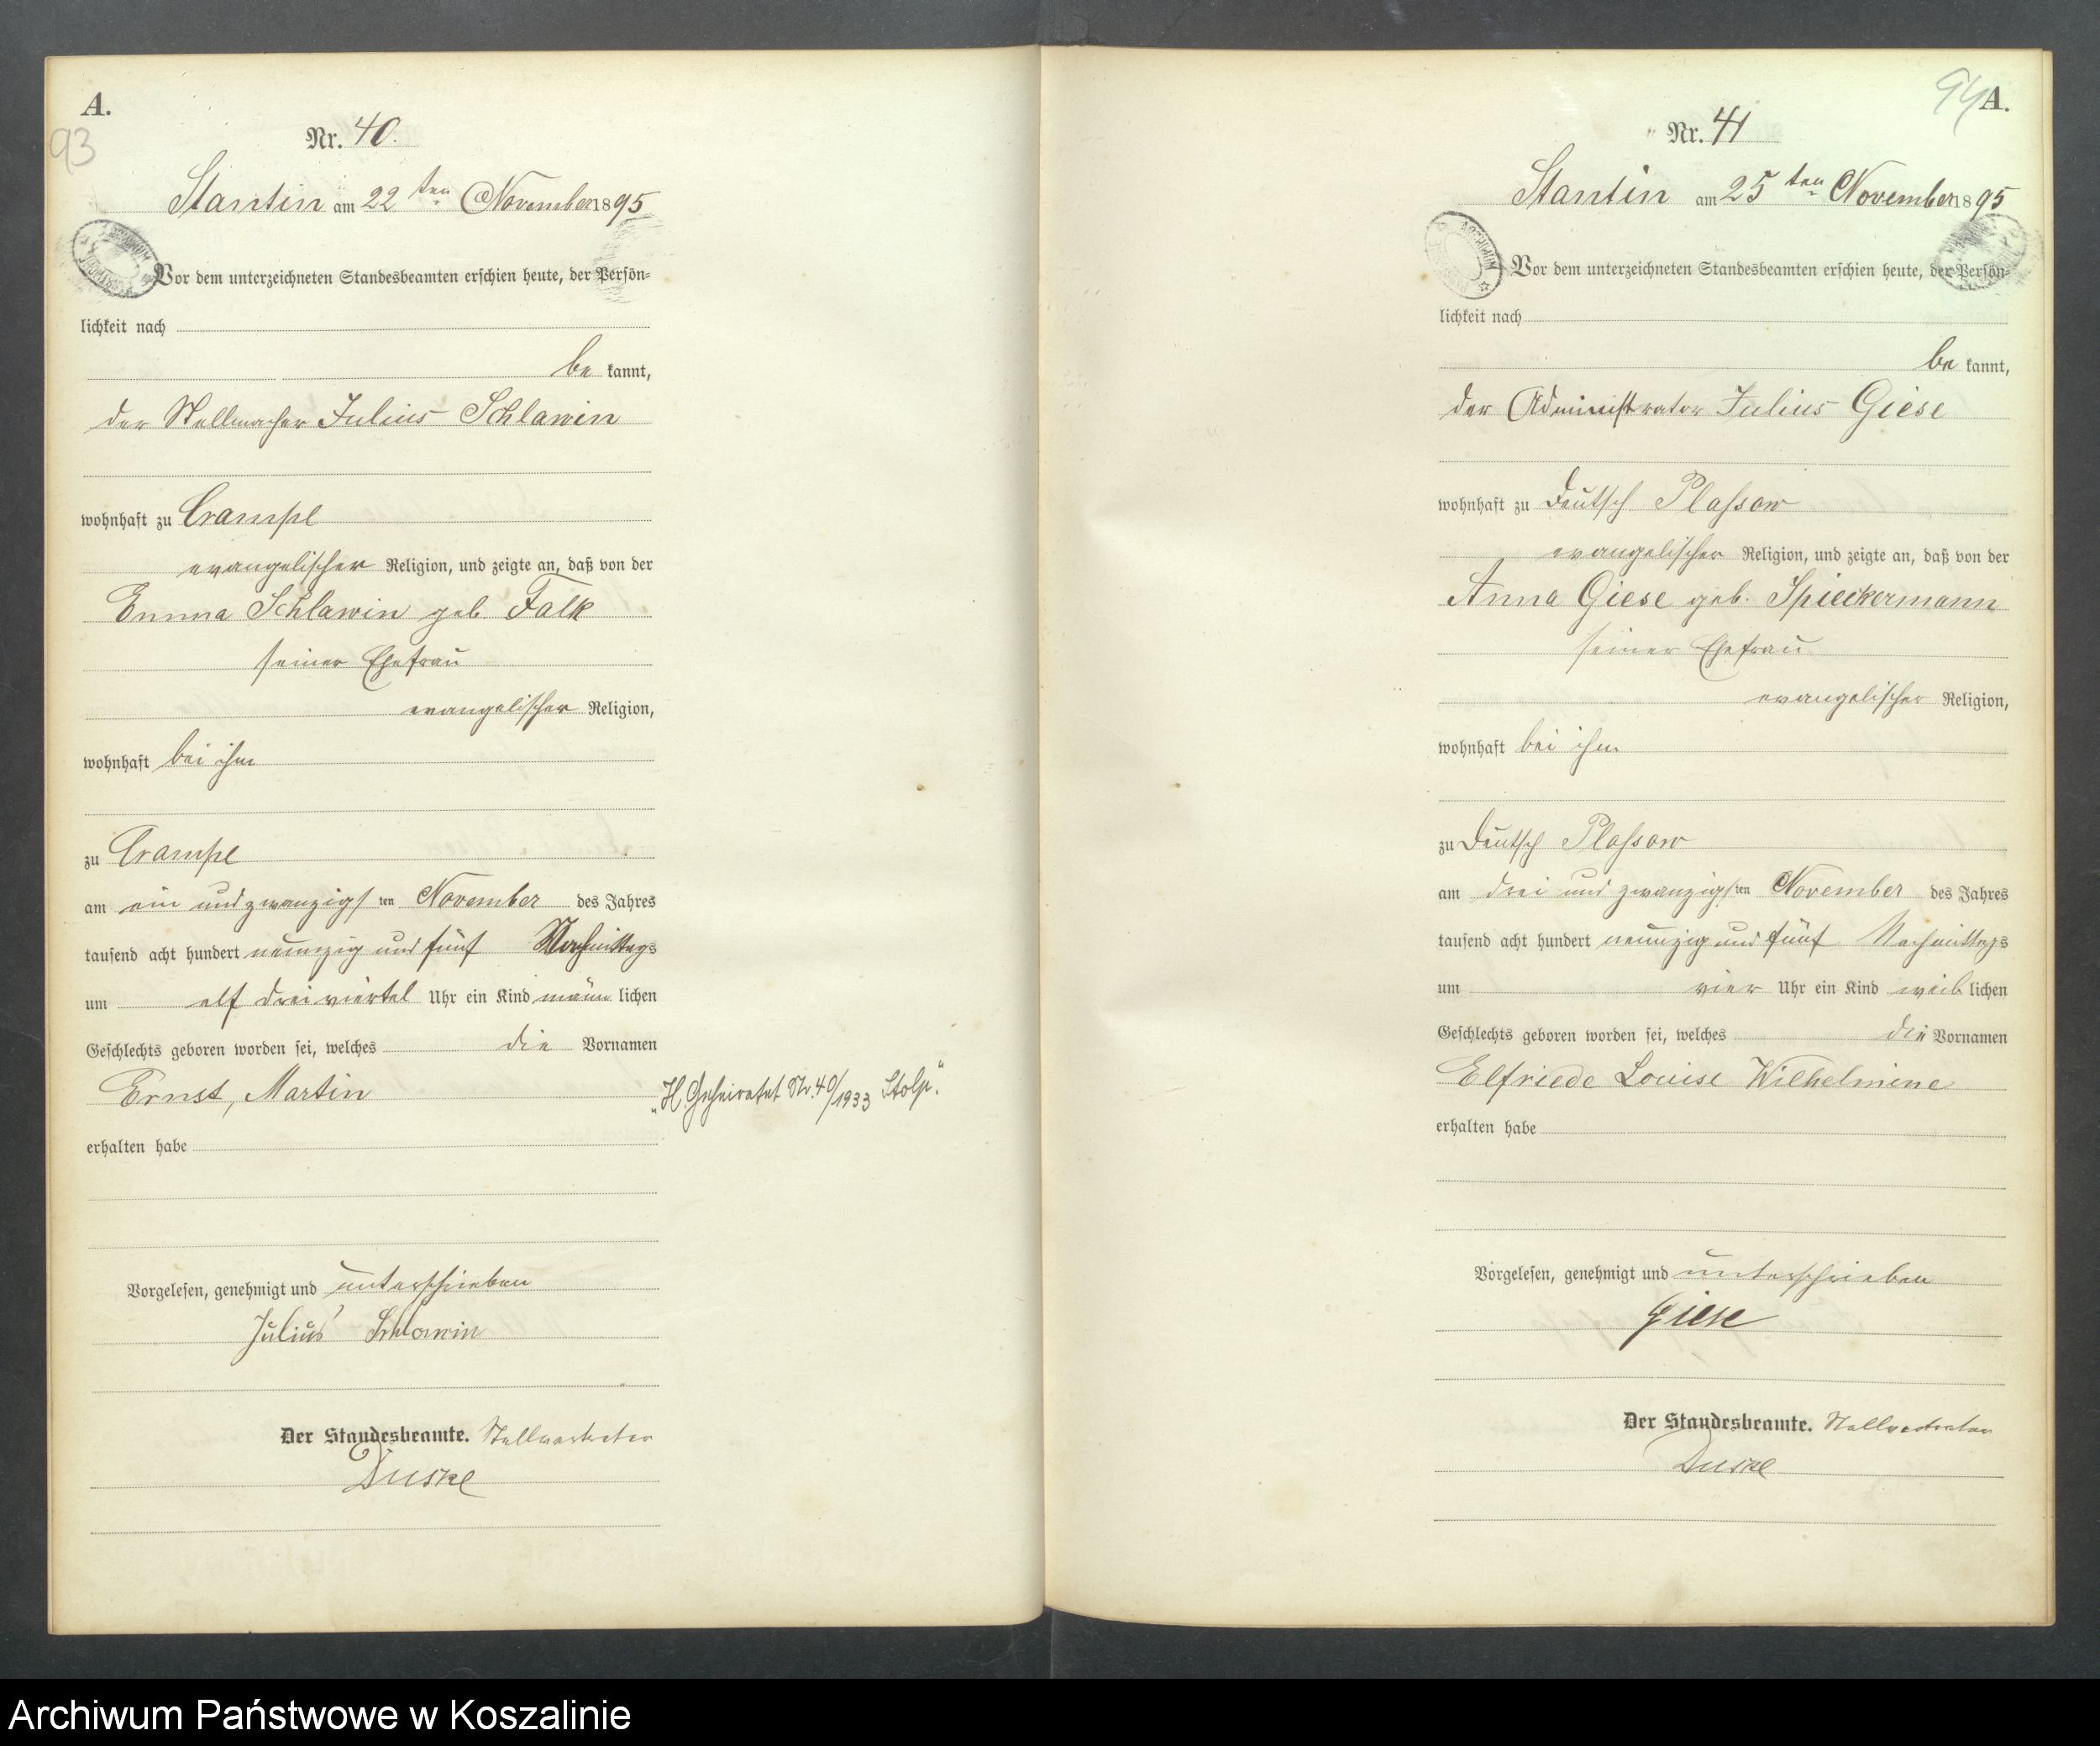 A.
93
Nr. 40.
Stantin am 22ten November 1895
Vor dem unterzeichneten Standesbeamten erschien heute, der Persön-
lichkeit nach
be kannt,
der Stellmacher Julius Schlawin
wohnhaft zu Crampe
evangelischer Religion, und zeigte an, daß von der
Emma Schlawin geb. Falk
seiner Ehefrau
evangelischer Religion,
wohnhaft bei ihm
zu Crampe
am ein und zwanzigsten November des Jahres
tausend acht hundert neunzig und fünf Nachmittags
um elf dreiviertel Uhr ein Kind männlichen
Geschlechts geboren worden sei, welches die Vornamen
Ernst, Martin
„H. Geheiratet Nr. 40/1933 Stolp.“
erhalten habe
Vorgelesen, genehmigt und unterschrieben
Julius Schlawin
Der Standesbeamte. Stellvertreter
Duske
94 A.
Nr. 41
Stantin am 25ten November 1895
Vor dem unterzeichneten Standesbeamten erschien heute, der Persön-
lichkeit nach
be kannt,
der Administrator Julius Giese
wohnhaft zu Deutsch Plassow
evangelischer Religion, und zeigte an, daß von der
Anna Giese geb. Spieckermann
seiner Ehefrau
evangelischer Religion,
wohnhaft bei ihm
zu Deutsch Plassow
am drei und zwanzigsten November des Jahres
tausend acht hundert neunzig und fünf Nachmittags
um vier Uhr ein Kind weiblichen
Geschlechts geboren worden sei, welches die Vornamen
Elfriede Louise Wilhelmine
erhalten habe
Vorgelesen, genehmigt und unterschrieben
Giese
Der Standesbeamte. Stellvertreter
Duske
Archiwum Państwowe w Koszalinie